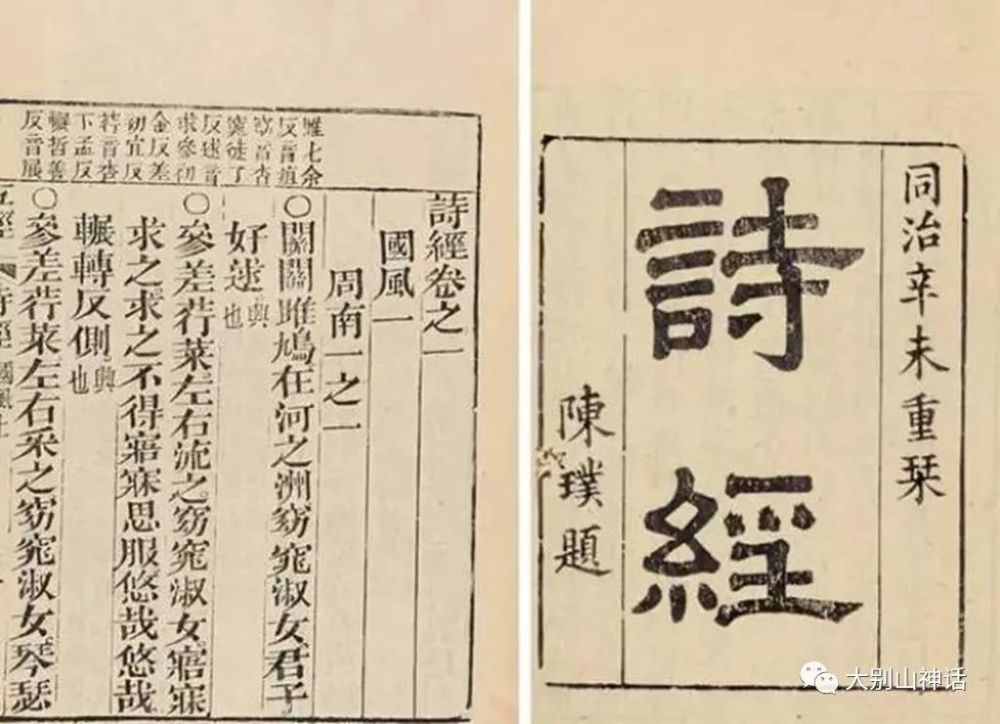 同治辛未重栞
詩經
陳璞題
雎七余
反音疽
窈音杳
窕徒了
反逑音
求參初
金反差
初宜反
荇音杏
下孟反
輾哲善
反音展
詩經卷之一
國風一
周南一之一
○關關雎鳩在河之洲窈窕淑女君子
好逑興也
○參差荇菜左右流之窈窕淑女寤寐
求之求之不得寤寐思服悠哉悠哉
輾轉反側興也
○參差荇菜左右采之窈窕淑女琴瑟
詩經 國風
大别山神话